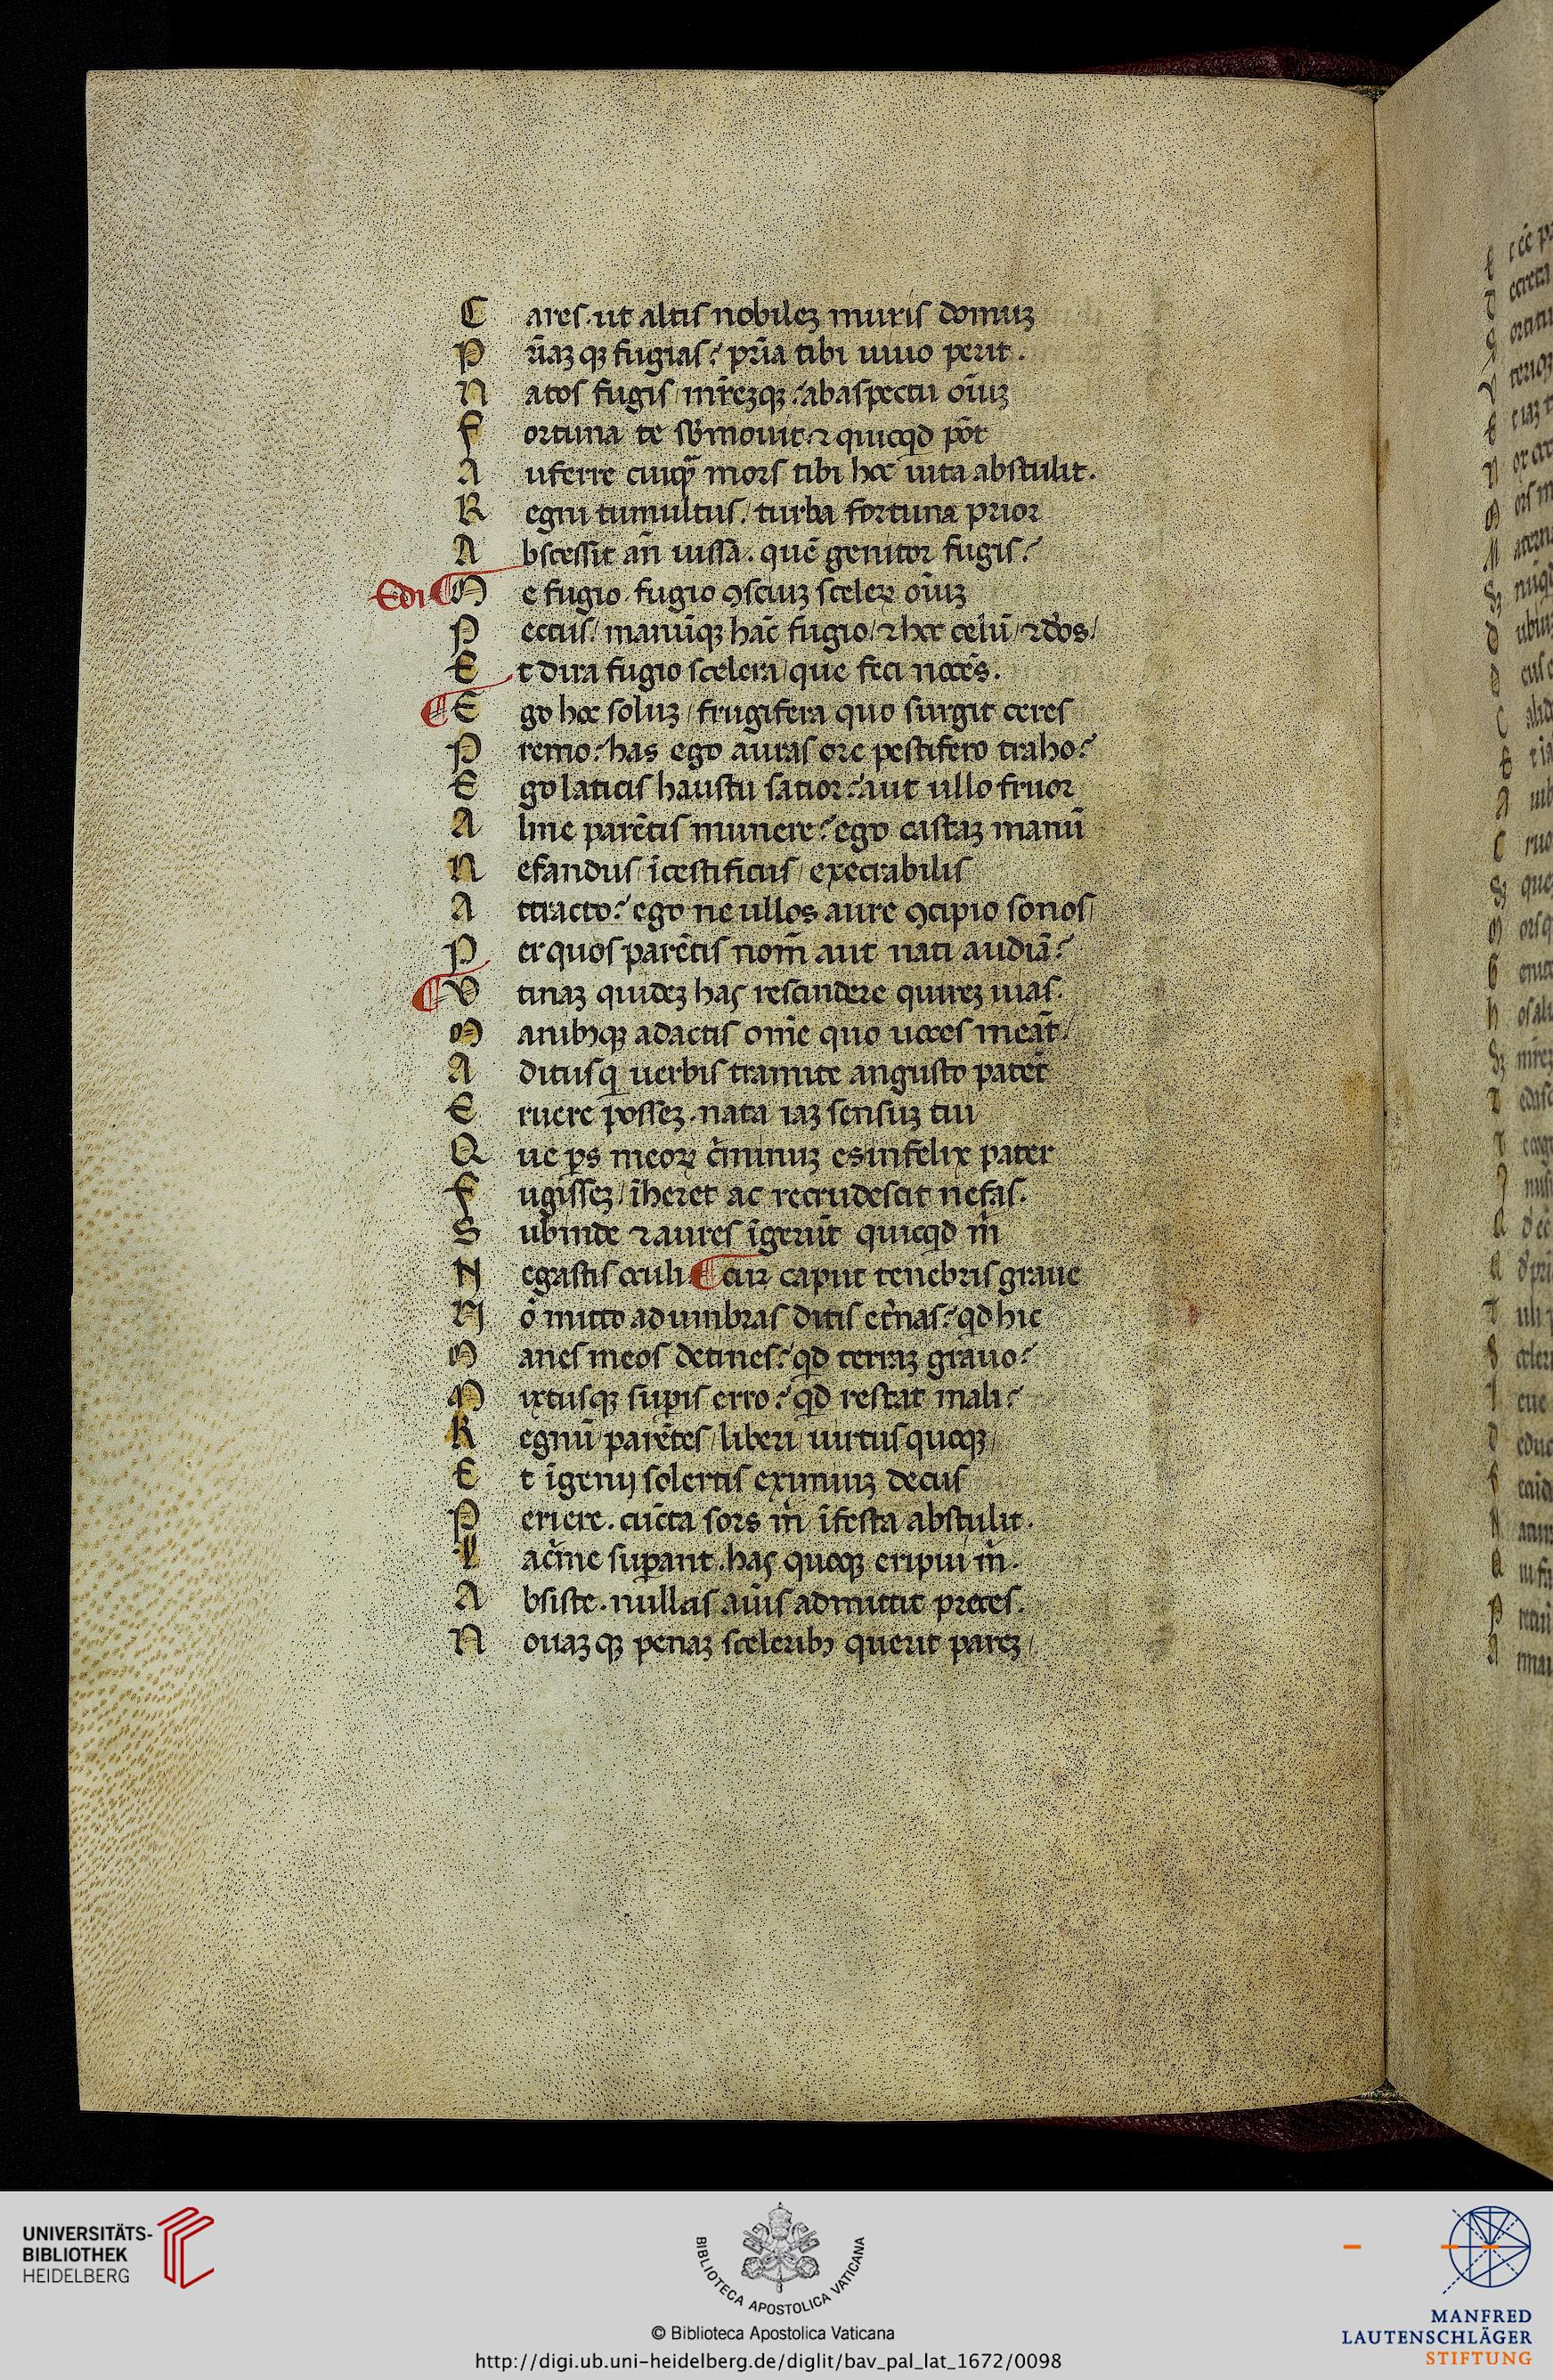 Cares. ut altis nobileʒ muris domuʒ
Pr̄iaʒ qʒ fugias? pr̄ia tibi uiuo perit.
Natos fugis / mr̄eʒqʒ? abaspectu oīuʒ
Fortuna te sb̄mouit. ⁊ quicqd pōt
Auferre cuiqꝫ mors tibi hoc uita abstulit.
Regni tumultus. / turba fortuna prior
Abscessit an̄ iussā. quē genitor fugis?
Edi ¶ Me fugio. fugio ꝯsciuʒ sceleꝝ oīuʒ
Pectus. / manūqʒ hāc fugio / ⁊ hoc celū / ⁊ dōs /
Et dira fugio scelera / que feci nocēs.
¶ Ego hoc soluʒ / frugifera quo surgit ceres
Premo? has ego auras ore pestifero traho?
Ego laticis haustu satior? aut ullo fruor
Alme parētis munere? ego castaʒ manū
Nefandus / īcestificus / execrabilis
Attracto? ego ne ullos aure ꝯcipio sonos /
Per quos parētis nom̄ aut nati audiā?
¶ Vtinaʒ quideʒ has rescindere quireʒ uias.
Manibꝫqʒ adactis om̄e quo uoces meāt /
Aditusqꝫ uerbis tramite angusto patet
Eruere posseʒ. nata iaʒ sensuʒ tui
Que ꝑs meoꝝ c̄minuʒ es infelix pater
Fugisseʒ / īheret ac recrudescit nefas.
Subinde ⁊ aures īgerūt quicqd m̄
Negastis oculi. ¶ cur caput tenebris graue
Nō mitto ad umbras ditis et̄nas? qd hic
Manes meos detines? qd terraʒ grauo?
Mixtusqʒ suꝑis erro? qd restat mali?
Regnū / parētes / liberi / uirtus quoqʒ /
Et īgenij solertis eximiuʒ decus
Periere. cūcta sors m̄ īfesta abstulit.
Lac̄me suꝑant. has quoqʒ eripui m̄.
Absiste. nullas aīus admittit preces.
Nouaʒ qʒ penaʒ sceleribꝫ querit pareʒ /
UNIVERSITÄTS-
BIBLIOTHEK
HEIDELBERG
BIBLIOTECA APOSTOLICA VATICANA
© Biblioteca Apostolica Vaticana
http://digi.ub.uni-heidelberg.de/diglit/bav_pal_lat_1672/0098
MANFRED
LAUTENSCHLÄGER
STIFTUNG